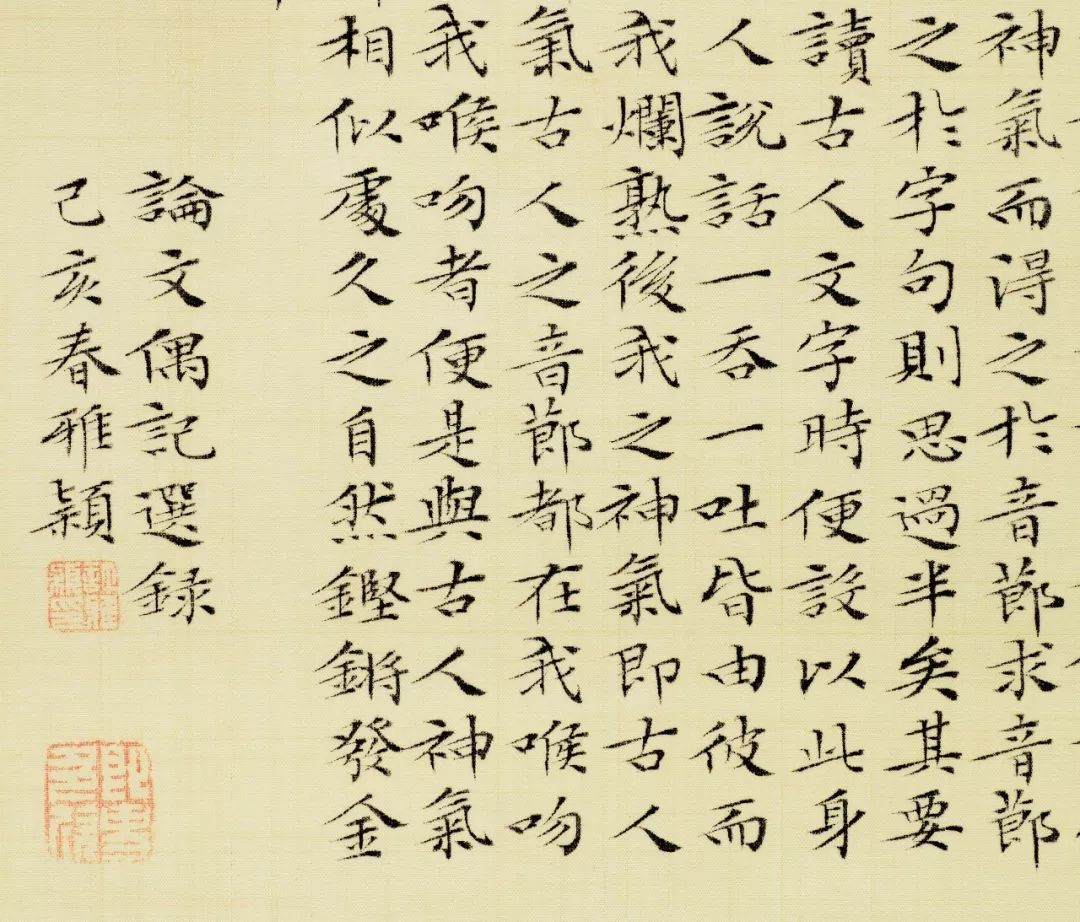 神氣而得之於音節求音節
之於字句則思過半矣其要
讀古人文字時便設以此身
人說話一吞一吐皆由彼而
我爛熟後我之神氣即古人
氣古人之音節都在我喉吻
我喉吻者便是與古人神氣
相似處久之自然鏗鏘發金
論文偶記選録
己亥春雅穎